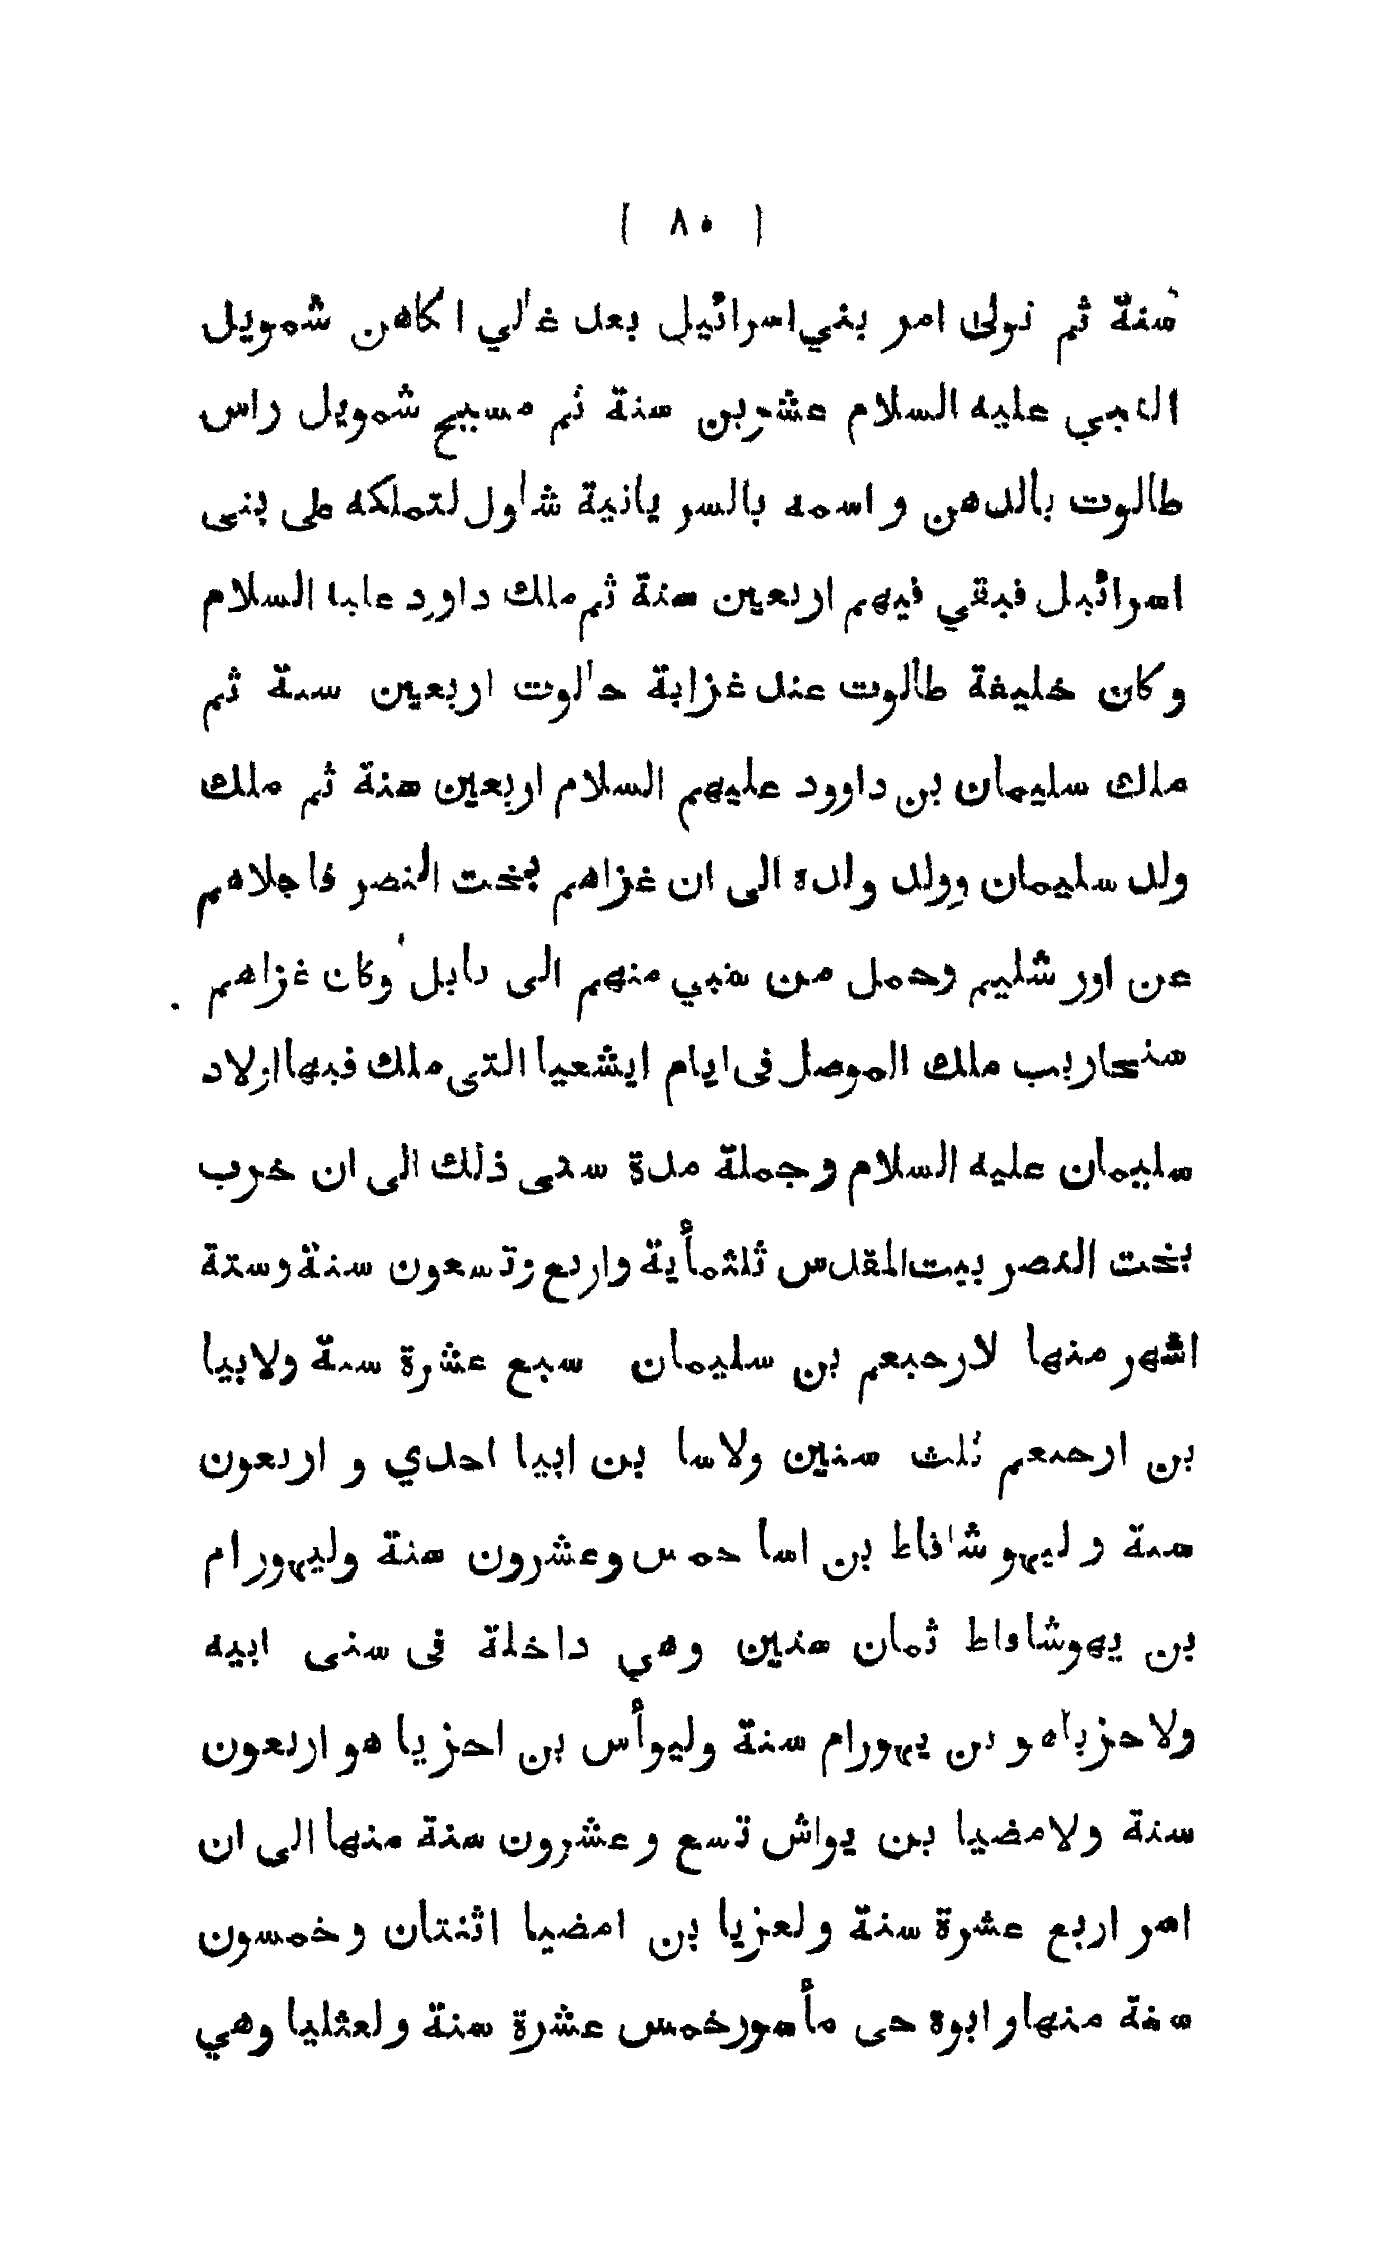 ( ٨٠ )
سنة ثم تولى امر بني اسرائيل بعد غالي الكاهن شمويل
النبي عليه السلام عشرين سنة ثم مسيح شمويل راس
طالوت بالدهن واسمه بالسريانية شاول لتملكه على بنى
اسرائيل فبقي فيهم اربعين سنة ثم ملك داود عليه السلام
وكان خليفة طالوت عند غزاية جالوت اربعين سنة ثم
ملك سليمان بن داوود عليهم السلام اربعين سنة ثم ملك
ولد سليمان وولد ولده الى ان غزاهم بخت النصر فاجلاهم
عن اور شليم وحمل من سبي منهم الى بابل وكان غزاهم
سنحاريب ملك الموصل فى ايام ايشعيا التى ملك فيها اولاد
سليمان عليه السلام وجملة مدة سنى ذلك الى ان خرب
بخت النصر بيت المقدس ثلثمأية واربع وتسعون سنة وستة
اشهر منها لارحبعم بن سليمان سبع عشرة سنة ولابيا
بن ارحبعم ثلث سنين ولاسا بن ابيا احدي و اربعون
سنة وليهوشافاط بن اسا خمس وعشرون سنة وليهورام
بن يهوشافاط ثمان سنين وهي داخلة فى سنى ابيه
ولاحزياهو بن يهورام سنة وليوأس بن احزيا هو اربعون
سنة ولامضيا بن يواش تسع وعشرون سنة منها الى ان
اسر اربع عشرة سنة ولعزيا بن امضيا اثنتان وخمسون
سنة منها وابوه حى مأسور خمس عشرة سنة ولعثليا وهي